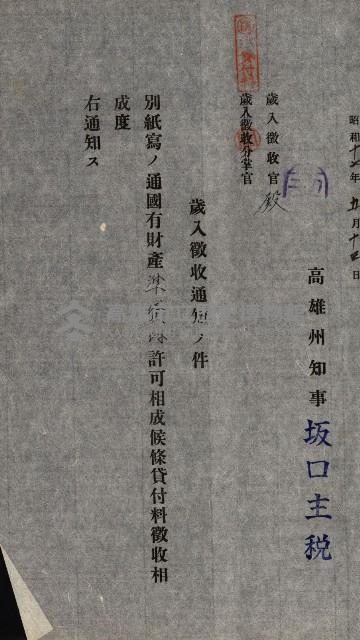 昭和十七年五月十五日
高雄州知事坂口主税
歲入徵收官殿
歲入徵收分掌官
歲入徵收通知ノ件
別紙寫ノ通國有財產許可相成候條貸付料徵收相
成度
右通知ス